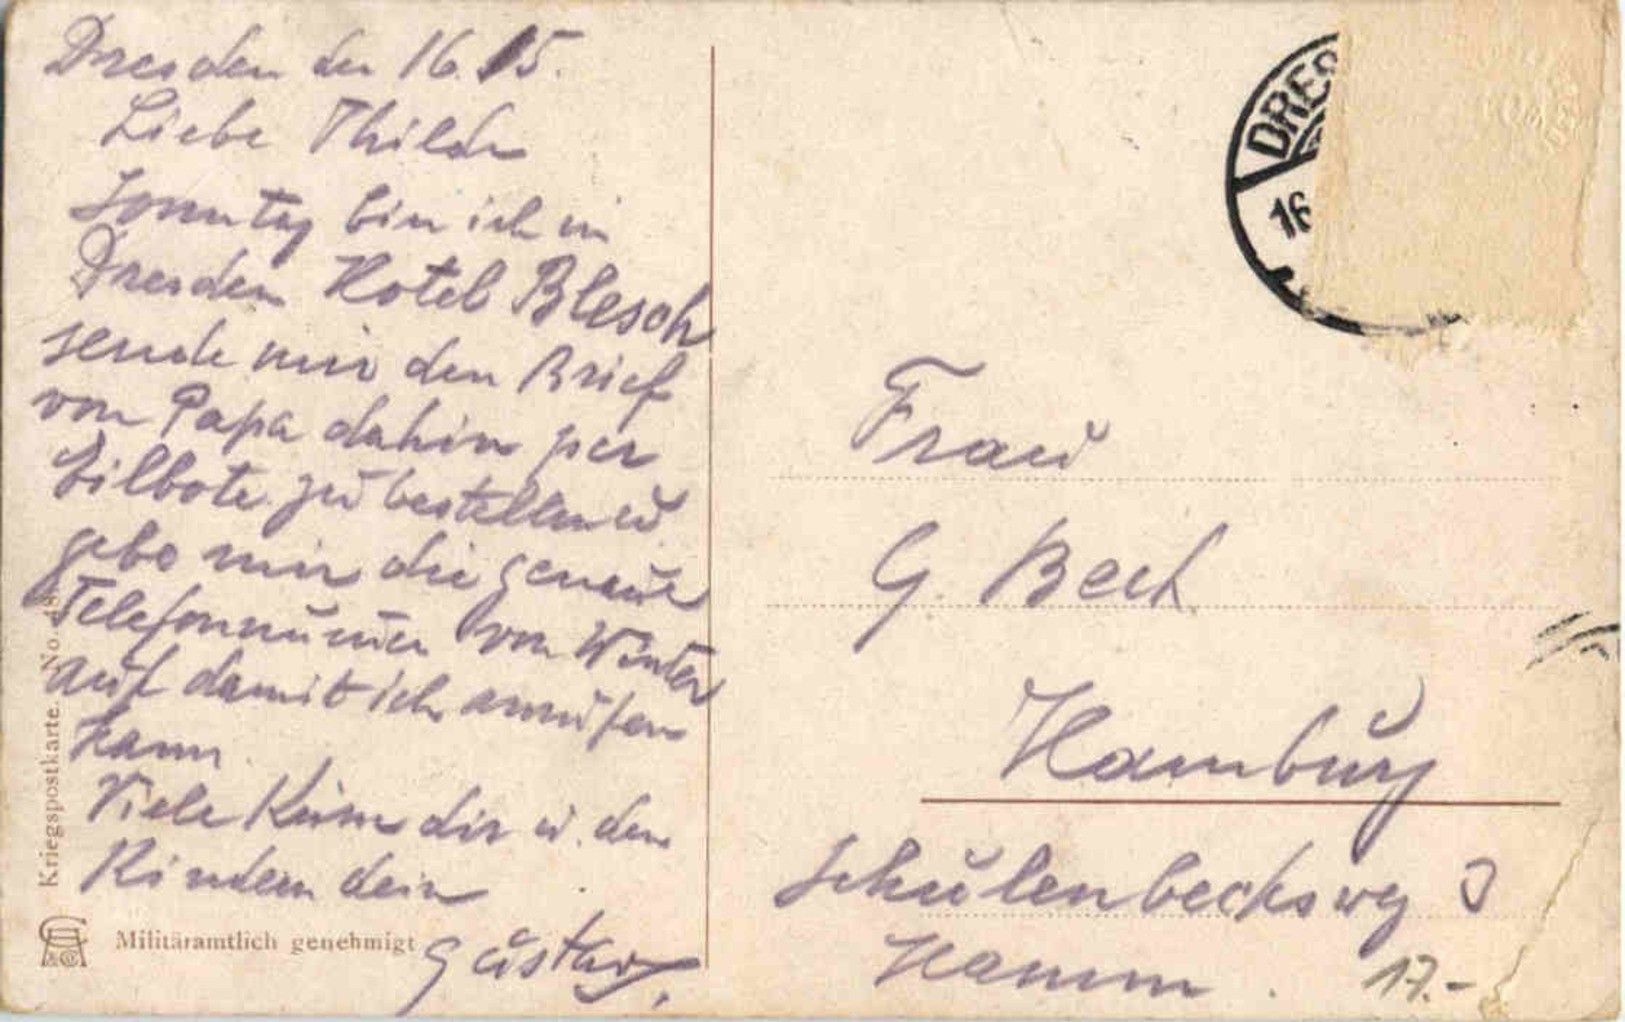 Dresden den 16. 15.
Liebe Thilda
Sonntag bin ich in
Dresden Hotel Blesch
sende mir den Brief
von Papa dahin per
Eilbote zu bestellen u
gebe mir die genaue
Telefonnummer von Winter
auf damit ich anrufen
kann
Viele Küsse dir u. den
Kindern dein
Gustav
Militäramtlich genehmigt
Kriegspostkarte. No. 48
DRES
16
Frau
G. Beck
Hamburg
Schulenbecksweg 3
Hamm
17.-